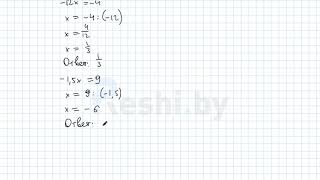 -12x = -4
x = -4 : (-12)
x = 4/12
x = 1/3
Ответ: 1/3
-1,5x = 9
x = 9 : (-1,5)
x = -6
Ответ:
Reshi.by